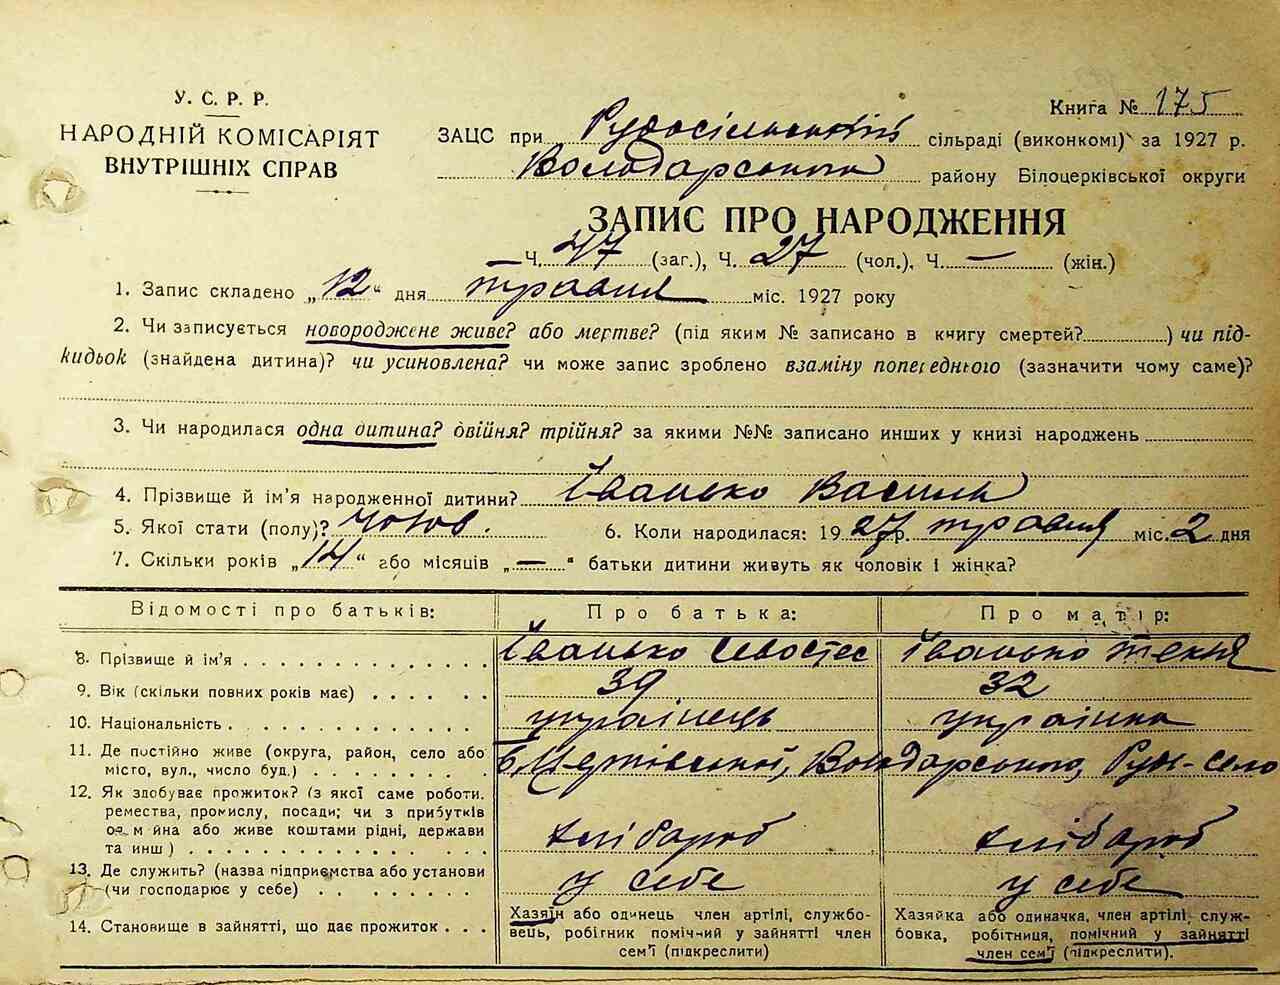 У. С. Р. Р.
НАРОДНІЙ КОМІСАРІЯТ
ВНУТРІШНІХ СПРАВ
Книга № 175
ЗАЦС при Рудосільський сільраді (виконкомі) за 1927 р.
Володарського району Білоцерківської округи
ЗАПИС ПРО НАРОДЖЕННЯ
Ч. 47 (заг.), Ч. 27 (чол.), Ч. — (жін.)
1. Запис складено „12“ дня травня міс. 1927 року
2. Чи записується новороджене живе? або мертве? (під яким № записано в книгу смертей?) чи під-
кидьок (знайдена дитина)? чи усиновлена? чи може запис зроблено взаміну попереднього (зазначити чому саме)?
3. Чи народилася одна дитина? двійня? трійня? за якими №№ записано инших у книзі народжень
4. Прізвище й ім'я народженної дитини? Іванько Василь
5. Якої стати (полу)? чолов. 6. Коли народилася: 1927 р. травня міс. 2 дня
7. Скільки років „14“ або місяців „—“ батьки дитини живуть як чоловік і жінка?
Відомості про батьків: Про батька: Про матір:
8. Прізвище й ім'я Іванько Іванько Текля
9. Вік (скільки повних років має) 39 32
10. Національність українець українка
11. Де постійно живе (округа, район, село або
місто, вул., число буд.) Б. Церківської, Володарського, Руде-село
12. Як здобуває прожиток? (з якої саме роботи.
ремества, промислу, посади; чи з прибутків
од майна або живе коштами рідні, держави
та инш) хлібароб хлібароб
13. Де служить? (назва підприємства або установи
(чи господарює у себе) у себе у себе
14. Становище в зайнятті, що дає прожиток
Хазяїн або одинець член артілі, службо-
вець, робітник помічний у зайнятті член
сем'ї (підкреслити)
Хазяйка або одиначка, член артілі, служ-
бовка, робітниця, помічний у зайнятті
член сем'ї (підкреслити).